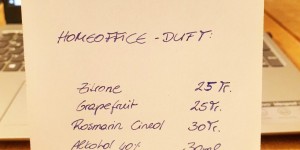 HOMEOFFICE-DUFT:
Zitrone 25Tr.
Grapefruit 25Tr.
Rosmarin Cineol 30Tr.
Alkohol 40% 30ml